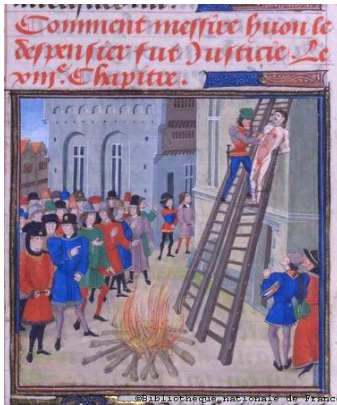 Comment messire huon le
despensier fut Justicie. Le
viiie. Chapitre.
©Bibliothèque nationale de Franc